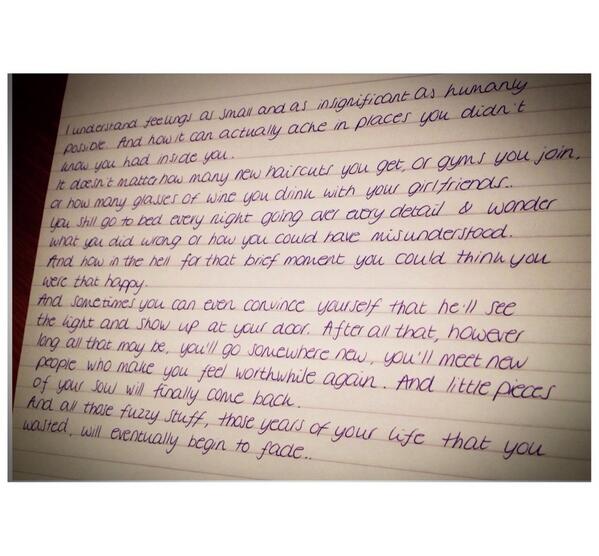 I understand feelings as small and as insignificant as humanly
possible. And how it can actually ache in places you didn't
know you had inside you.
It doesn't matter how many new haircuts you get, or gyms you join,
or how many glasses of wine you drink with your girlfriends..
you still go to bed every night going over every detail & wonder
what you did wrong or how you could have misunderstood.
And how in the hell for that brief moment you could think you
were that happy.
And sometimes you can even convince yourself that he'll see
the light and show up at your door. After all that, however
long all that may be, you'll go somewhere new, you'll meet new
people who make you feel worthwhile again. And little pieces
of your soul will finally come back.
And all those fuzzy stuff, those years of your life that you
wasted, will eventually begin to fade..